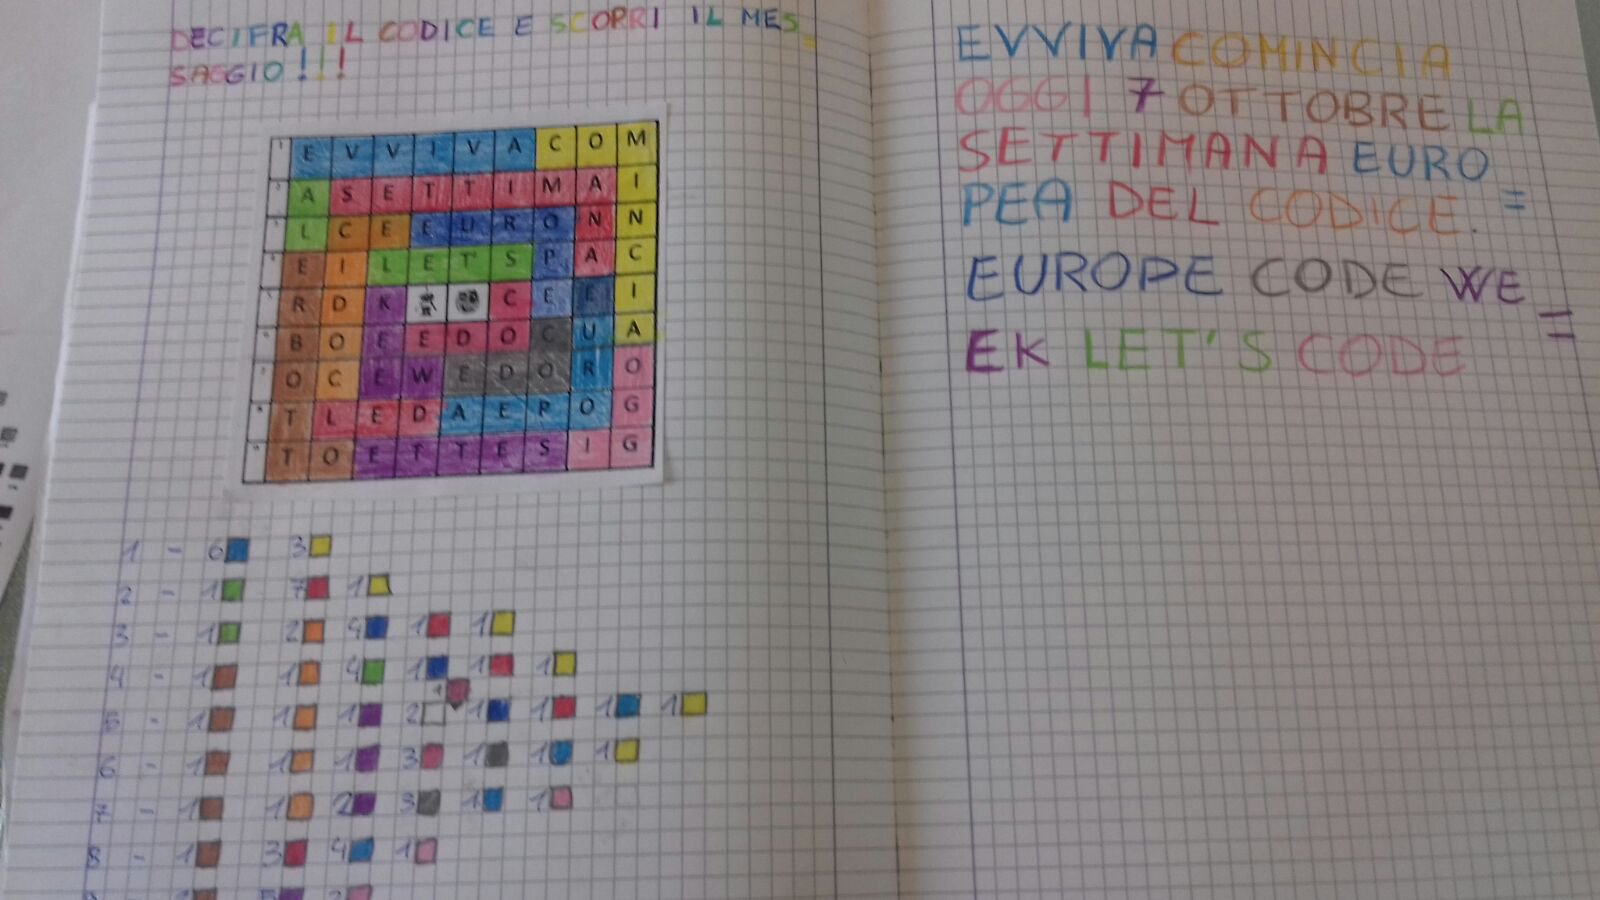 DECIFRA IL CODICE E SCOPRI IL MES_
SAGGIO!!!
1 E V V I V A C O M
2 A S E T T I M A I
3 L C E E U R O N N
4 E I L E T' S P A C
5 R D K C E E I
6 B O E E D O C U A
7 O C E W E D O R O
8 T L E D A E P O G
9 T O E T T E S I G
1 - 6 3
2 - 1 7 1
3 - 1 2 4 1 1
4 - 1 1 4 1 1 1
1
5 - 1 1 1 2 1 1 1 1
6 - 1 1 1 3 1 1 1
7 - 1 1 2 3 1 1
8 - 1 3 4 1
EVVIVA COMINCIA
OGGI 7 OTTOBRE LA
SETTIMANA EURO =
PEA DEL CODICE.
EUROPE CODE WE =
EK LET'S CODE